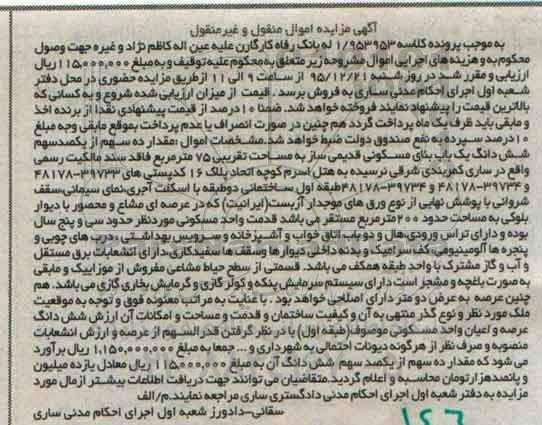 آگهی مزایده اموال منقول و غیرمنقول
به موجب پرونده کلاسه 1/953953 له بانک رفاه کارگران علیه عین اله کاظم نژاد و غیره جهت وصول
محکوم به و هزینه های اجرایی اموال مشروحه زیر متعلق به محکوم علیه توقیف و به مبلغ 115,000,000 ریال
ارزیابی و مقرر شد در روز شنبه 95/12/21 از ساعت 9 الی 11 از طریق مزایده حضوری در محل دفتر
شعبه اول اجرای احکام مدنی ساری به فروش برسد. قیمت از میزان ارزیابی شده شروع و به کسانی که
بالاترین قیمت را پیشنهاد نمایند فروخته خواهد شد. ضمنا 10 درصد از قیمت پیشنهادی نقدا از برنده اخذ
و مابقی باید ظرف یک ماه پرداخت گردد هم چنین در صورت انصراف یا عدم پرداخت بموقع مابقی وجه مبلغ
10 درصد سپرده به نفع صندوق دولت ضبط خواهد شد. مشخصات اموال: مقدار ده سهم از یکصد سهم
شش دانگ یک باب بنای مسکونی قدیمی ساز به مساحت تقریبی 75 مترمربع فاقد سند مالکیت رسمی
واقع در ساری کمربندی شرقی نرسیده به هتل اسرم کوچه اتحاد پلاک 16 کدپستی های 39733-48178
و 39734-48178 و 39734-48178 طبقه اول ساختمانی دو طبقه با اسکلت آجری، نمای سیمانی، سقف
شروانی با پوشش نهایی از نوع ورق های موجدار آزبست (ایرانیت) که در عرصه ای مشاع و محصور با دیوار
بلوکی به مساحت حدود 200 مترمربع مستقر می باشد قدمت واحد مسکونی موردنظر حدود سی و پنج سال
بوده و دارای تراس ورودی، هال و دو باب اتاق خواب و آشپزخانه و سرویس بهداشتی، درب های چوبی و
پنجره ها آلومینیومی، کف سرامیک و بدنه داخلی دیوارها و سقف ها سفیدکاری، دارای انشعابات برق مستقل
و آب و گاز مشترک با واحد طبقه همکف می باشد. قسمتی از سطح حیاط مشاعی مفروش از موزاییک و مابقی
به صورت باغچه و مشجر است دارای سیستم سرمایش پنکه و کولر گازی و گرمایش بخاری گازی می باشد. هم
چنین عرصه به عرض دو متر دارای اصلاحی خواهد بود. با عنایت به مراتب معنونه فوق و توجه به موقعیت
ملک مورد نظر و نوع گذر منتهی به آن و کیفیت ساختمان و قدمت و مساحت و امکانات آن ارزش شش دانگ
عرصه و اعیان واحد مسکونی موصوف (طبقه اول) با در نظر گرفتن قدرالسهم از عرصه و ارزش انشعابات
منصوبه و صرف نظر از هرگونه دیونات احتمالی به شهرداری و ... جمعا به مبلغ 1,150,000,000 ریال برآورد
می شود که مقدار ده سهم از یکصد سهم شش دانگ آن به مبلغ 115,000,000 ریال معادل یازده میلیون
و پانصدهزار تومان محاسبه و اعلام گردید. متقاضیان می توانند جهت دریافت اطلاعات بیشتر از مال مورد
مزایده به دفتر شعبه اول اجرای احکام مدنی دادگستری ساری مراجعه نمایند. م/الف
سقائی- دادورز شعبه اول اجرای احکام مدنی ساری